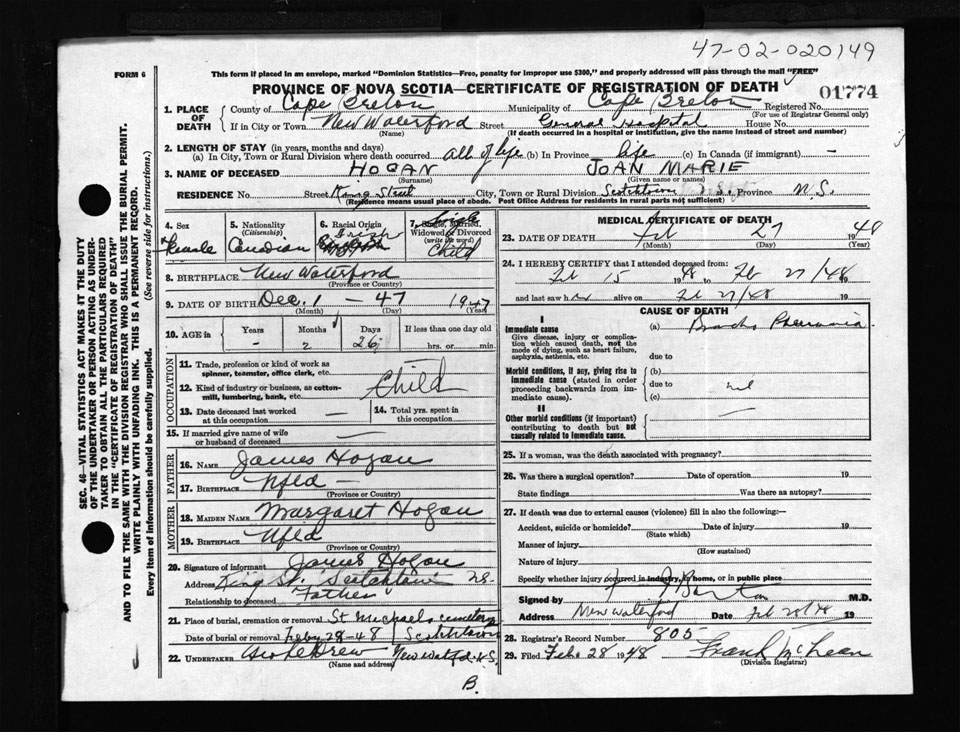 47-02-020149
FORM 6
This form if placed in an envelope, marked "Dominion Statistics—Free, penalty for improper use $300," and properly addressed will pass through the mail "FREE"
PROVINCE OF NOVA SCOTIA—CERTIFICATE OF REGISTRATION OF DEATH
01774
1. PLACE OF DEATH County of Cape Breton Municipality of Cape Breton Registered No.
(For use of Registrar General only)
If in City or Town New Waterford Street General Hospital House No.
(Name) (If death occurred in a hospital or institution, give the name instead of street and number)
2. LENGTH OF STAY (in years, months and days)
(a) In City, Town or Rural Division where death occurred all of life (b) In Province life (c) In Canada (if immigrant) —
3. NAME OF DECEASED HOGAN JOAN MARIE
(Surname) (Given name or names)
RESIDENCE No. Street King Street City, Town or Rural Division Scotchtown Province N.S.
(Residence means usual place of abode. Post Office Address for residents in rural parts not sufficient)
4. Sex Female
5. Nationality (Citizenship) Canadian
6. Racial Origin Irish
7. Single, Married, Widowed or Divorced (write the word) Single Child
8. BIRTHPLACE New Waterford
(Province or Country)
9. DATE OF BIRTH Dec. 1 - 47 1947
(Month) (Day) (Year)
10. AGE in Years Months Days If less than one day old
- 2 26 hrs. or min.
OCCUPATION
11. Trade, profession or kind of work as spinner, teamster, office clerk, etc.
12. Kind of industry or business, as cotton-mill, lumbering, bank, etc.
Child
13. Date deceased last worked at this occupation —
14. Total yrs. spent in this occupation
15. If married give name of wife or husband of deceased —
FATHER
16. NAME James Hogan
17. BIRTHPLACE Nfld —
(Province or Country)
MOTHER
18. MAIDEN NAME Margaret Hogan
19. BIRTHPLACE Nfld
(Province or Country)
20. Signature of informant James Hogan
Address King St. Scotchtown NS.
Relationship to deceased Father
21. Place of burial, cremation or removal St Michaels cemetery
Date of burial or removal Feby 28-48 Scotchtown
22. UNDERTAKER New Watfd N.S.
(Name and address)
B.
MEDICAL CERTIFICATE OF DEATH
23. DATE OF DEATH Feb 27 1948
(Month) (Day) (Year)
24. I HEREBY CERTIFY that I attended deceased from:
Feb 15 1948 to Feb 27/48 19
and last saw her alive on Feb 27/48 19
CAUSE OF DEATH
I
Immediate cause
Give disease, injury or complication which caused death, not the mode of dying, such as heart failure, asphyxia, asthenia, etc.
(a) Broncho Pneumonia
due to
Morbid conditions, if any, giving rise to immediate cause (stated in order proceeding backwards from immediate cause).
(b)
due to nil
(c)
II
Other morbid conditions (if important) contributing to death but not causally related to immediate cause. —
25. If a woman, was the death associated with pregnancy?
26. Was there a surgical operation? Date of operation 19
State findings Was there an autopsy?
27. If death was due to external causes (violence) fill in also the following:—
Accident, suicide or homicide? Date of injury 19
(State which)
Manner of injury
(How sustained)
Nature of injury
Specify whether injury occurred in industry, in home, or in public place
Signed by M.D.
Address New Waterford Date Feb 28/48 19
28. Registrar's Record Number 805
29. Filed Feb. 28 1948 Frank McLean
(Division Registrar)
SEC. 46—VITAL STATISTICS ACT MAKES IT THE DUTY
OF THE UNDERTAKER OR PERSON ACTING AS UNDER-
TAKER TO OBTAIN ALL THE PARTICULARS REQUIRED
IN THE "CERTIFICATE OF REGISTRATION OF DEATH"
AND TO FILE THE SAME WITH THE DIVISION REGISTRAR WHO SHALL ISSUE THE BURIAL PERMIT.
WRITE PLAINLY WITH UNFADING INK. THIS IS A PERMANENT RECORD.
Every item of information should be carefully supplied. (See reverse side for instructions.)